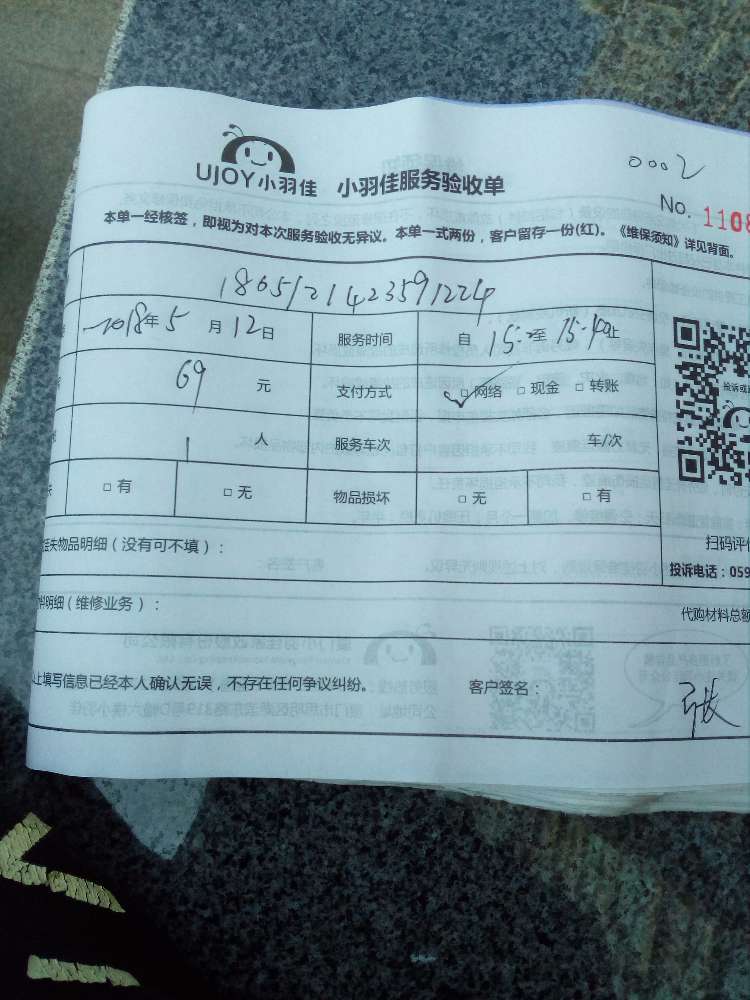 0002
UJOY小羽佳 小羽佳服务验收单
No. 1108
本单一经核签，即视为对本次服务验收无异议。本单一式两份，客户留存一份(红)。《维保须知》详见背面。
2018年5月12日 服务时间 自 15: 至 15:40止
69 元 支付方式 ✓□网络 □现金 □转账
1 人 服务车次 车/次
□有 □无 物品损坏 □无 □有
丢失物品明细（没有可不填）：
扫码评
投诉电话：059
料明细（维修业务）：
代购材料总额
以上填写信息已经本人确认无误，不存在任何争议纠纷。 客户签名：